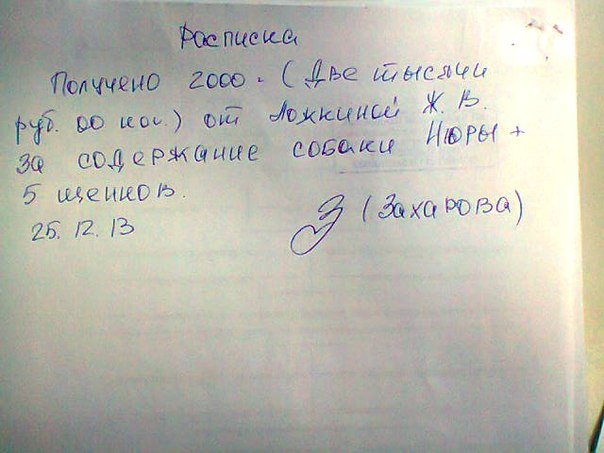 Расписка
Получено 2000 - (Две тысячи
руб. 00 коп.) от Ложкиной Ж. В.
за содержание собаки Нюры +
5 щенков.
25. 12. 13
З (Захарова)